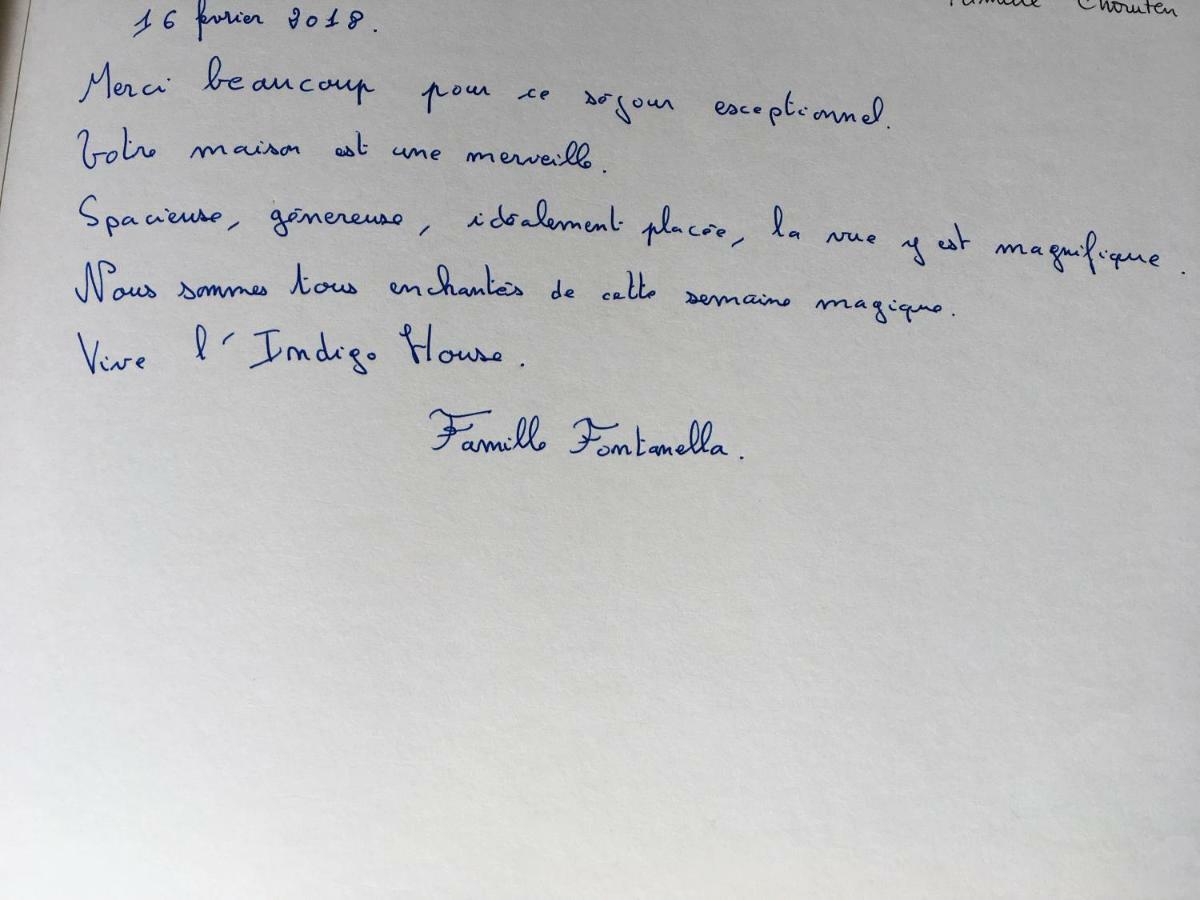 Chouten
16 fevrier 2018.
Merci beaucoup pour ce séjour esceptionnel.
Votre maison est une merveille.
Spacieuse, génereuse, idéalement placée, la vue y est magnifique.
Nous sommes tous enchantés de cette semaine magique.
Vive l'Indigo House.
Famille Fontanella.